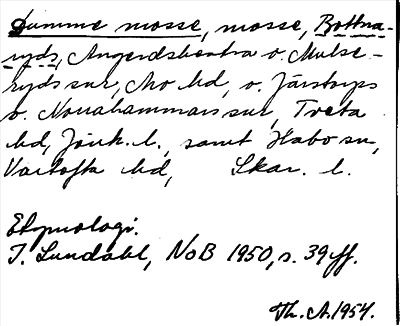 Dumme mosse, mosse, Bottna-
ryds, Angerdshestra o. Mulse-
ryds snr, Mo hd, o. Järstorps
o. Norrahammars snr, Tveta
hd, Jönk. l., samt Habo sn,
Vartofta hd, Skar. l.
Etymologi.
I. Lundahl, NoB 1950, s. 39 ff.
Th. A. 1954.